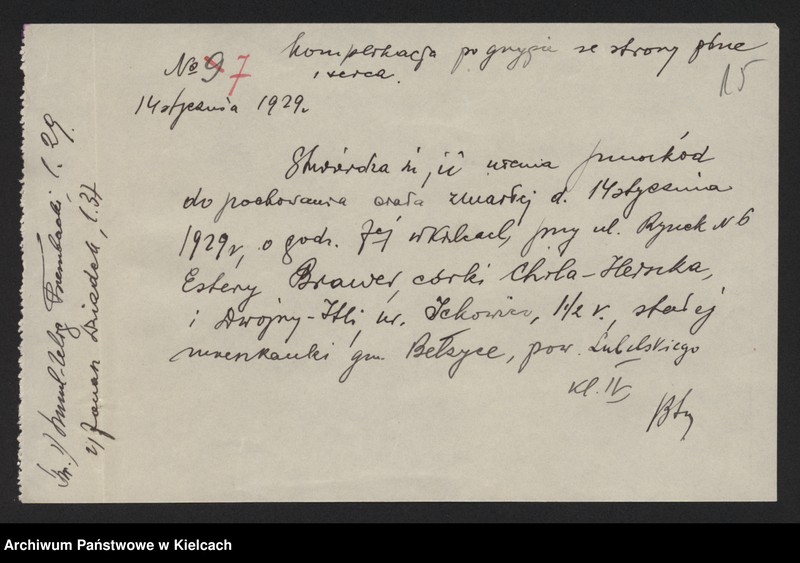 No 9 7
komplikacja po grypie ze strony płuc
i serca.
15
14 stycznia 1929 r.
Stwierdza się, iż niema przeszkód
do pochowania ciała zmarłej d. 14 stycznia
1929 r., o godz. 7ej w Kielcach, przy ul. Rynek N 6
Estery Brawer, córki Chila-Herszka,
i Dwojry-Itli, ur. Ickowicz, 1 1/2 r., stałej
mieszkanki gm. Bełżyce, pow. Lubelskiego
Kl. IV
Św. 1/ Szmul-Zelig Trembacki l. 29.
2/ Dziadek, l. 37
Archiwum Państwowe w Kielcach